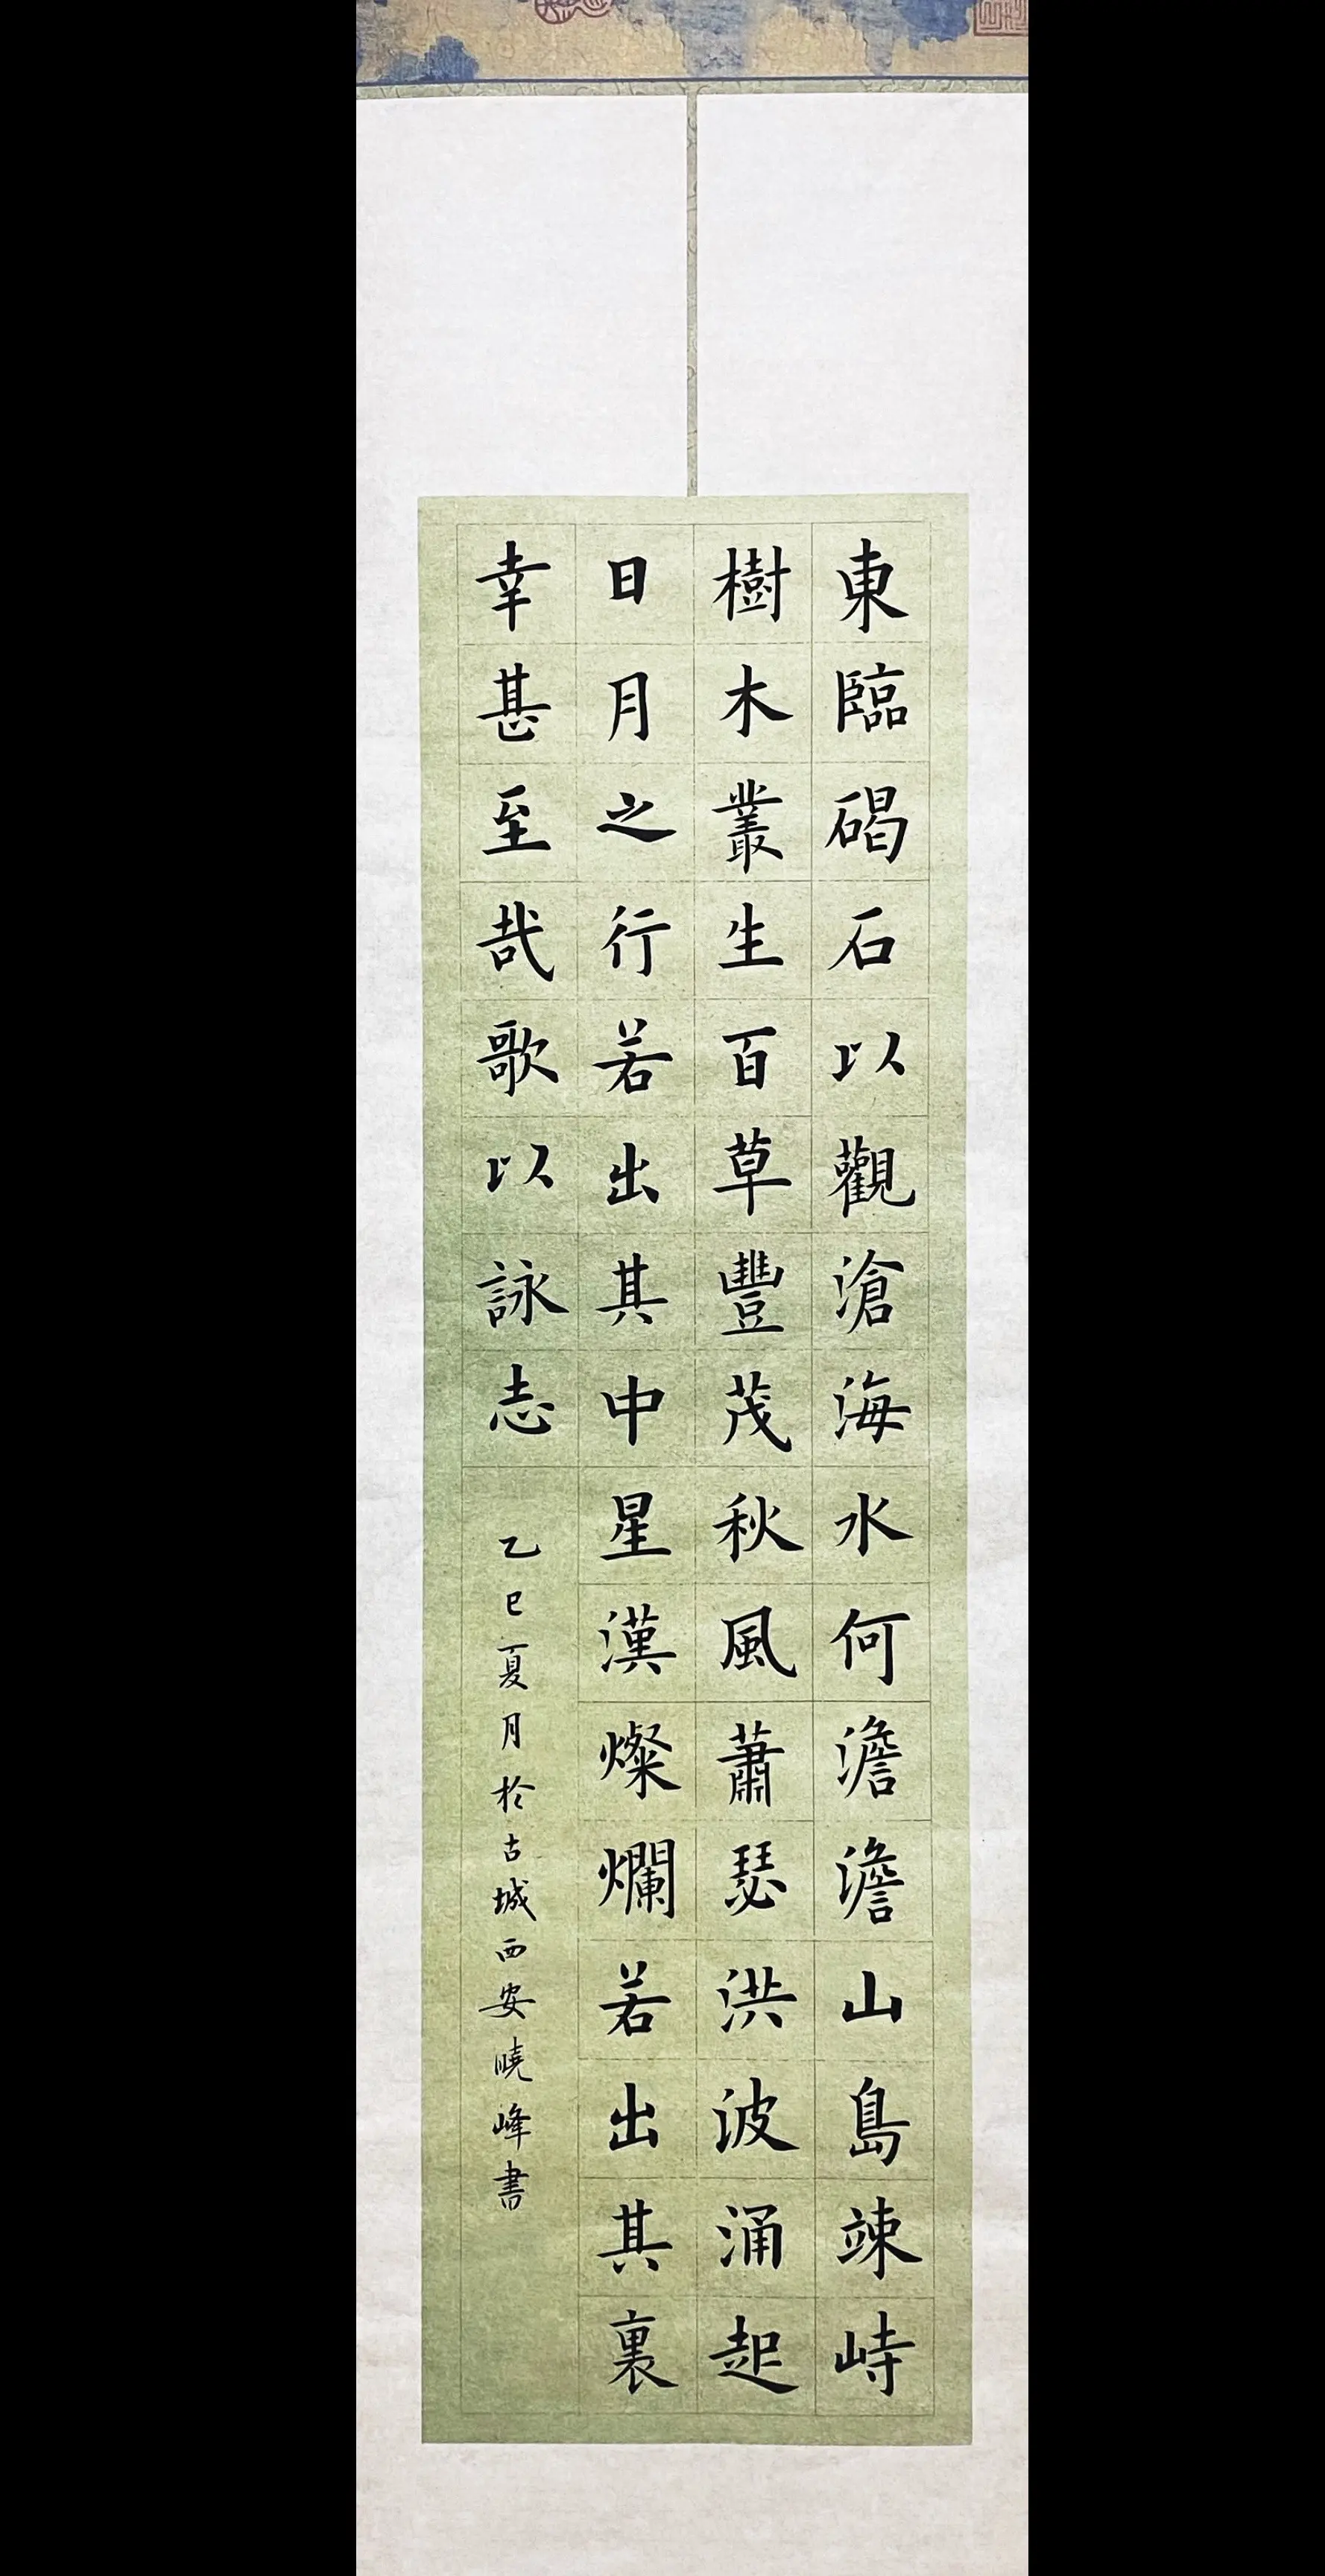 東臨碣石以觀滄海水何澹澹山島竦峙
樹木叢生百草豐茂秋風蕭瑟洪波涌起
日月之行若出其中星漢燦爛若出其裏
幸甚至哉歌以詠志
乙巳夏月於古城西安曉峰書